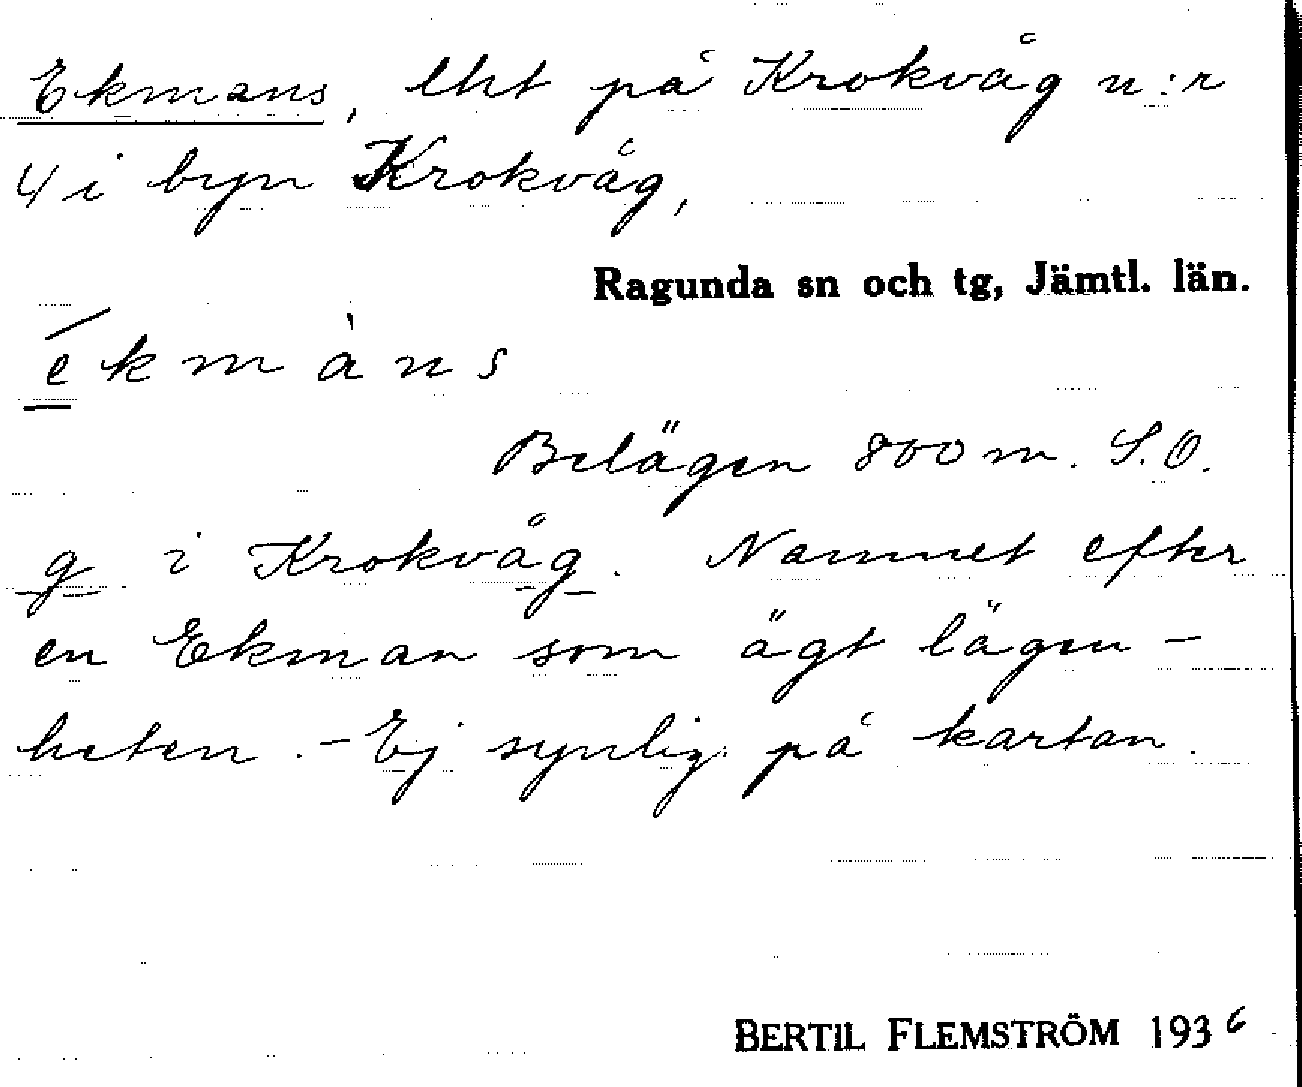 Ekmans, lht på Krokvåg n:r
4 i byn Krokvåg,
Ragunda sn och tg, Jämtl. län.
é k m à n s
Belägen 800 m. S.O.
g i Krokvåg. Namnet efter
en Ekman som ägt lägen-
heten. - Ej synlig på kartan.
BERTIL FLEMSTRÖM 1936